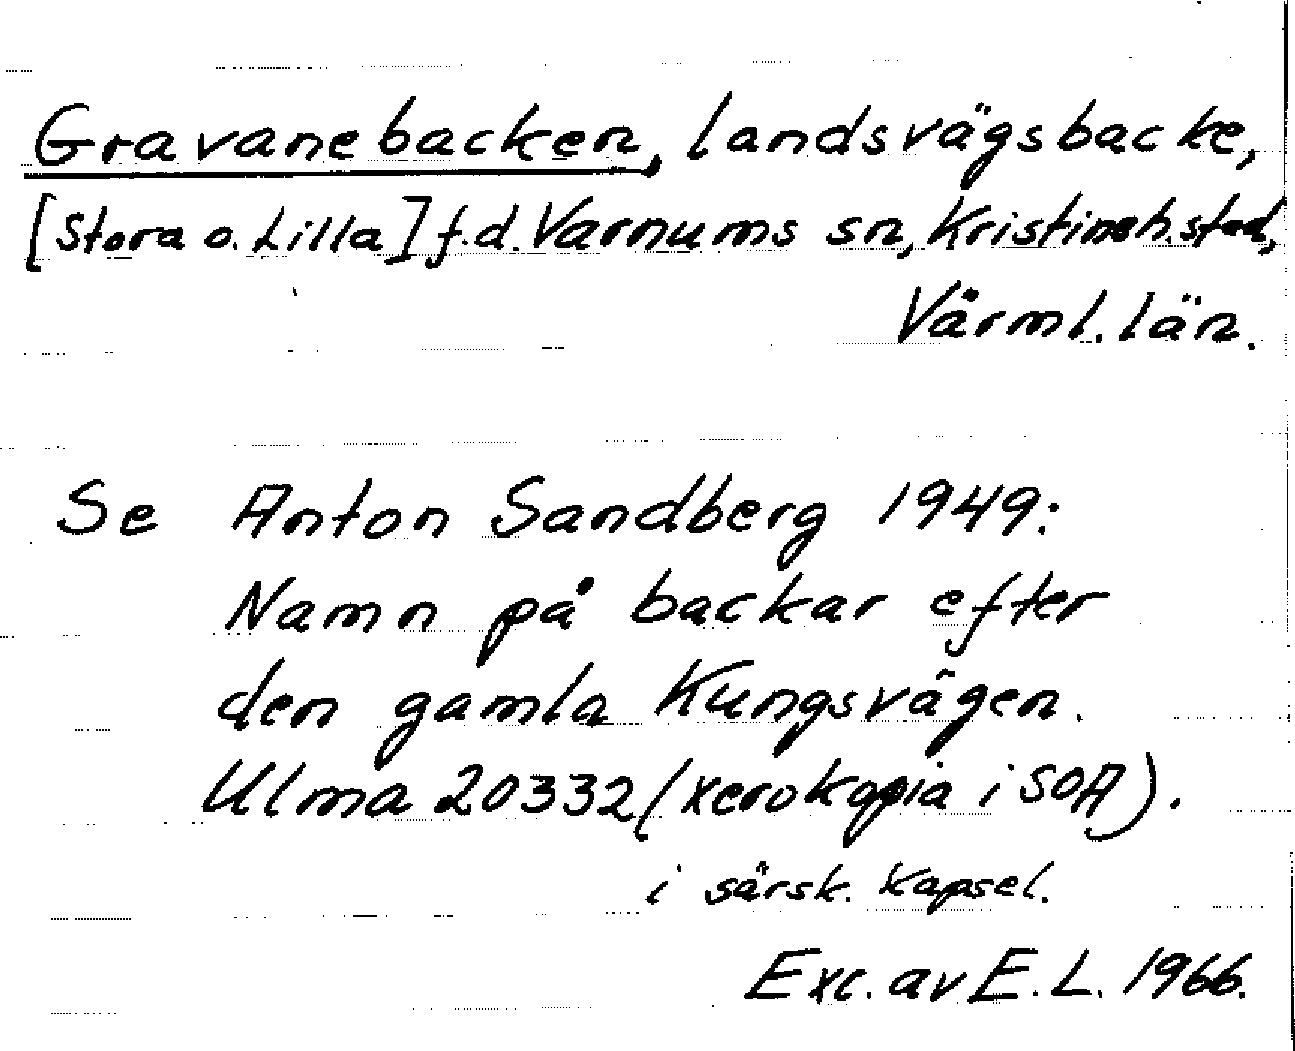 Gravanebacken, landsvägsbacke,
[Stora o. Lilla] f.d. Varnums sn, Kristineh. stad,
Värml. län.
Se Anton Sandberg 1949:
Namn på backar efter
den gamla Kungsvägen.
Ulma 20332 (xerokopia i SOA).
i särsk. kapsel.
Exc. av E. L. 1966.